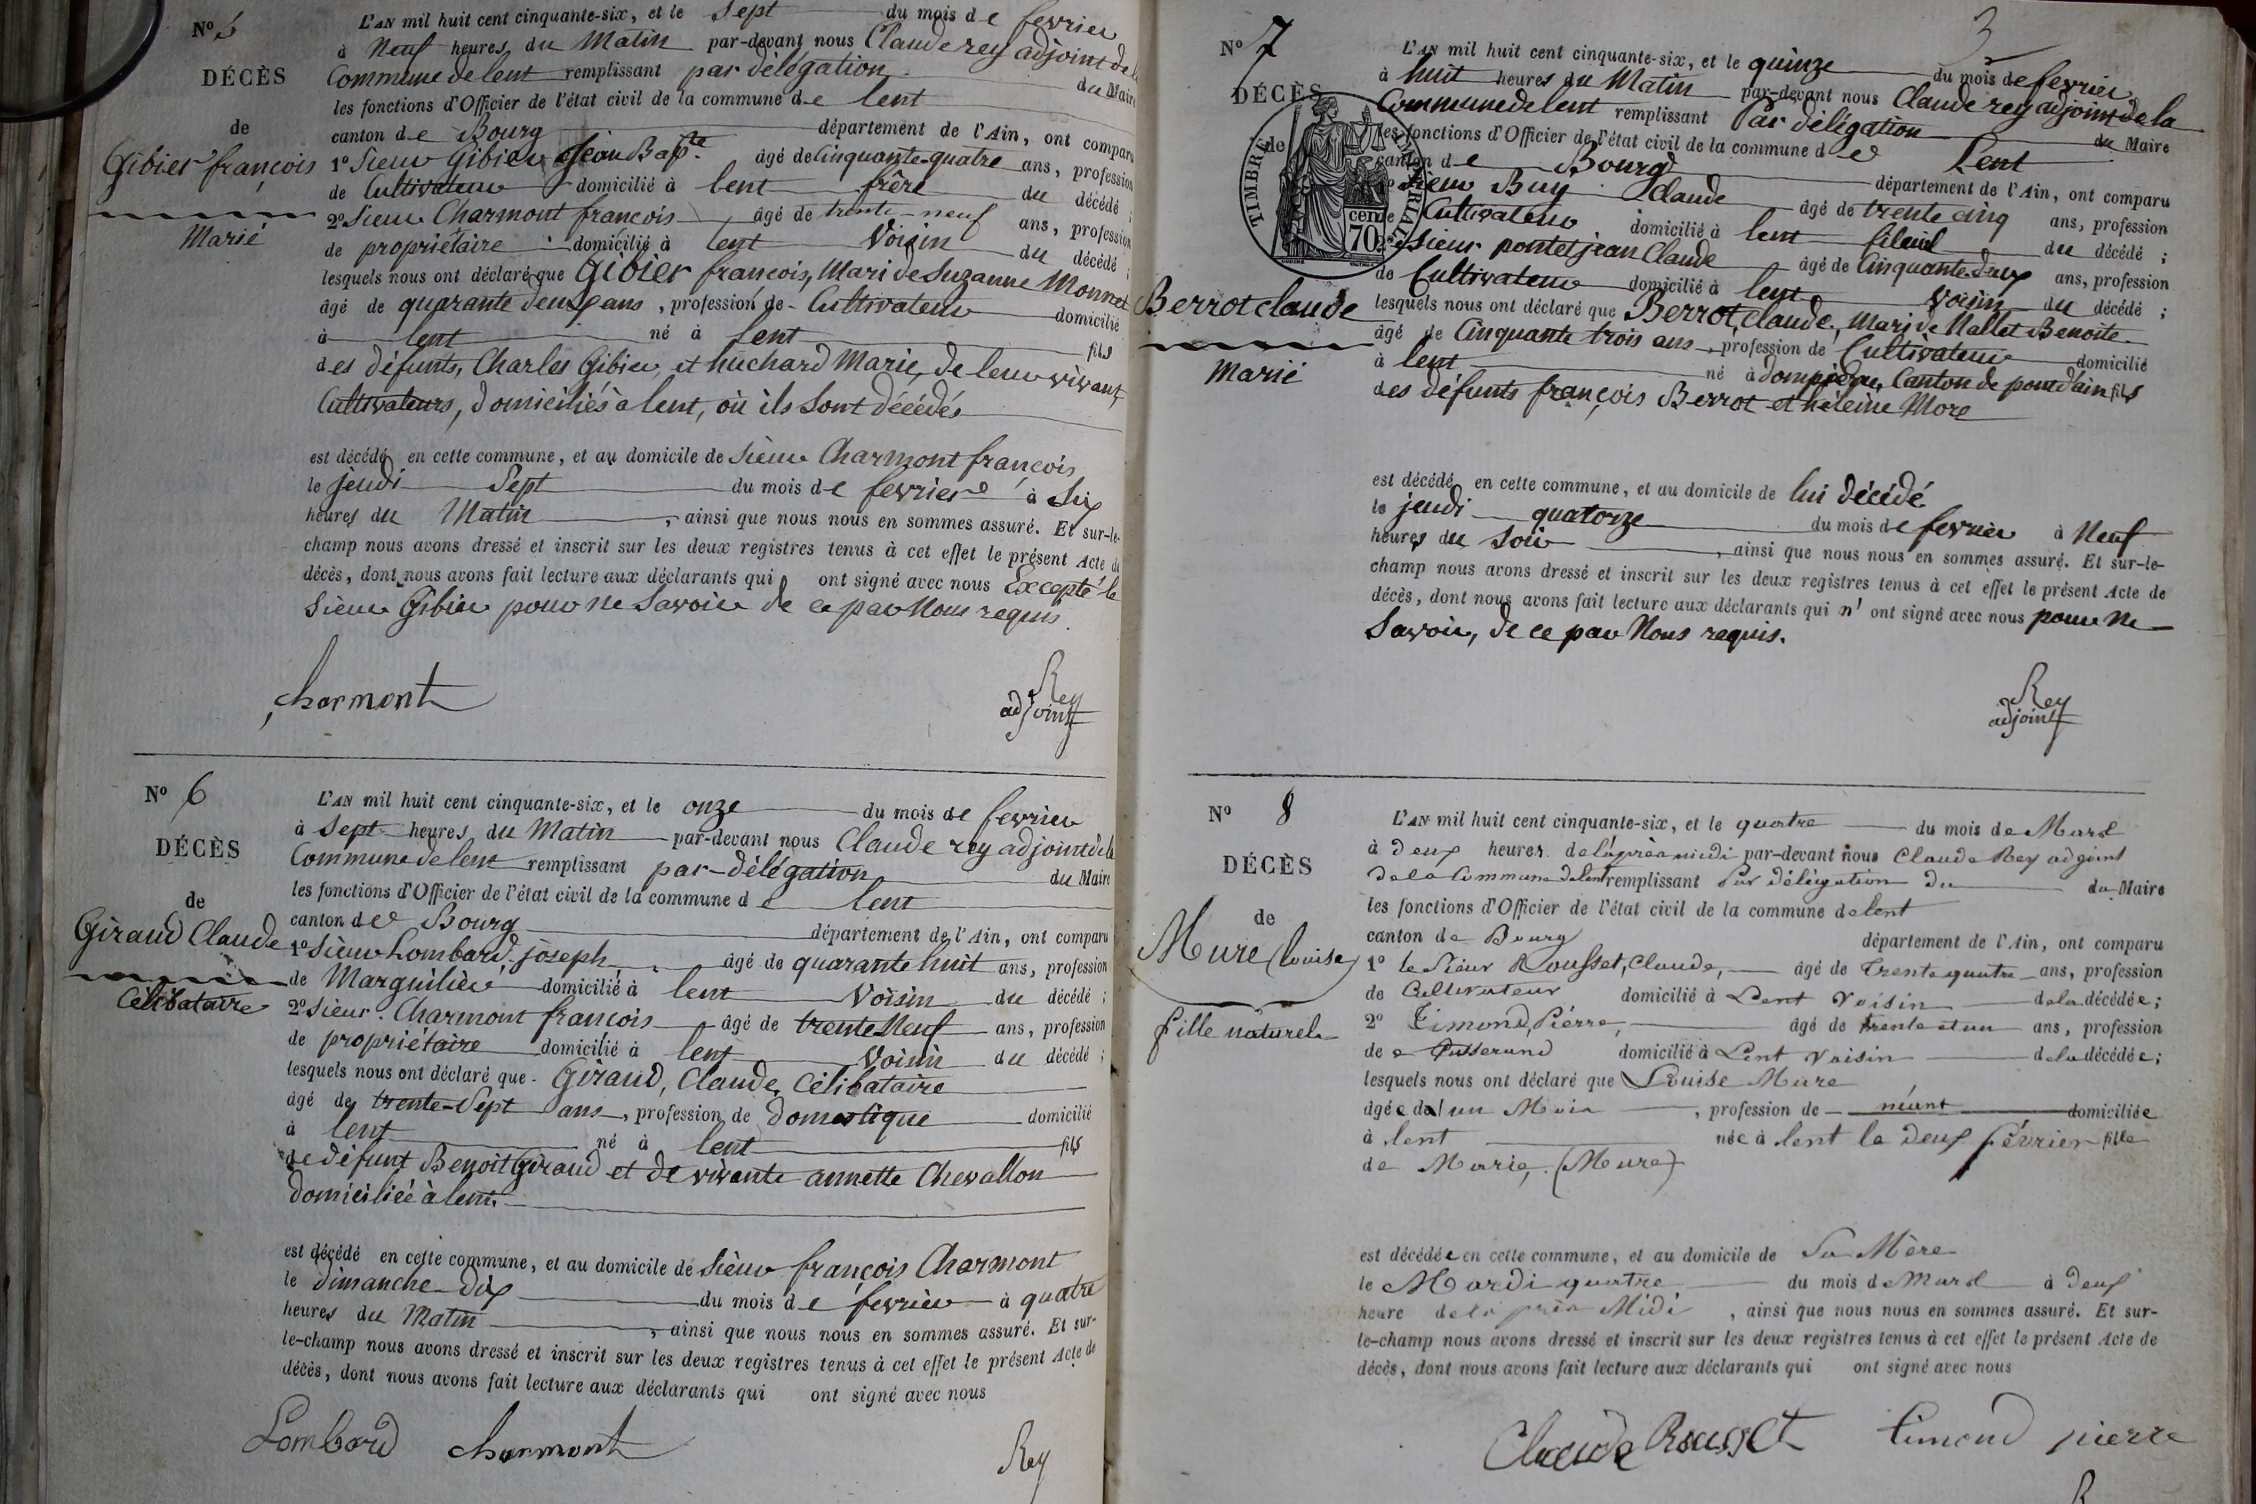 N° 5
DÉCÈS
de
Gibier françois
Marié
L'AN mil huit cent cinquante-six, et le Sept du mois de fevrier
à Neuf heures du Matin par-devant nous Claude rey adjoint de la
Commune de lent remplissant par délégation du Maire
les fonctions d'Officier de l'état civil de la commune de lent
canton de Bourg département de l'Ain, ont comparu
1° Sieur Gibier Jean Bapte âgé de Cinquante-quatre ans, profession
de Cultivateur domicilié à lent frère du décédé ;
2° Sieur Charmont françois âgé de trente-neuf ans, profession
de propriétaire domicilié à lent Voisin du décédé ;
lesquels nous ont déclaré que Gibier françois, Mari de Suzanne Monnet
âgé de quarante deux ans, profession de Cultivateur domicilié
à lent né à lent fils
des défunts, Charles Gibier, et huchard Marie, de leur vivant,
Cultivateurs, domiciliés à lent, où ils sont décédés
est décédé en cette commune, et au domicile de Sieur Charmont françois
le jeudi Sept du mois de fevrier à Six
heures du Matin, ainsi que nous nous en sommes assuré. Et sur-le-
champ nous avons dressé et inscrit sur les deux registres tenus à cet effet le présent Acte de
décès, dont nous avons fait lecture aux déclarants qui ont signé avec nous Excepté le
Sieur Gibier pour ne Savoir de ce par Nous requis.
charmont
Rey
adjoint
N° 6
DÉCÈS
de
Giraud Claude
Célibataire
L'AN mil huit cent cinquante-six, et le onze du mois de fevrier
à Sept heures du Matin par-devant nous Claude rey adjoint de la
Commune de lent remplissant par-délégation du Maire
les fonctions d'Officier de l'état civil de la commune de lent
canton de Bourg département de l'Ain, ont comparu
1° Sieur Lombard joseph âgé de quarante huit ans, profession
de Marguilier domicilié à lent Voisin du décédé ;
2° Sieur Charmont françois âgé de trente Neuf ans, profession
de propriétaire domicilié à lent Voisin du décédé ;
lesquels nous ont déclaré que Giraud, Claude, Célibataire
âgé de trente-Sept ans, profession de Domestique domicilié
à lent né à lent fils
de défunt Benoit Giraud et de vivante annette Chevallon
domiciliée à lent.
est décédé en cette commune, et au domicile de Sieur françois Charmont
le dimanche dix du mois de fevrier à quatre
heures du Matin, ainsi que nous nous en sommes assuré. Et sur-
le-champ nous avons dressé et inscrit sur les deux registres tenus à cet effet le présent Acte de
décès, dont nous avons fait lecture aux déclarants qui ont signé avec nous
Lombard charmont Rey
3
N° 7
DÉCÈS
de
TIMBRE IMPÉRIAL
70 cen
Berrot claude
Marié
L'AN mil huit cent cinquante-six, et le quinze du mois de fevrier
à huit heures du Matin par-devant nous Claude rey adjoint de la
Commune de lent remplissant Par délégation du Maire
les fonctions d'Officier de l'état civil de la commune de Lent
canton de Bourg département de l'Ain, ont comparu
Sieur Buy Claude âgé de trente cinq ans, profession
de Cultivateur domicilié à lent filleul du décédé ;
Sieur pontet jean Claude âgé de Cinquante deux ans, profession
de Cultivateur domicilié à lent Voisin du décédé ;
lesquels nous ont déclaré que Berrot, Claude, Mari de Nallet Benoite
âgé de Cinquante trois ans, profession de Cultivateur domicilié
à lent né à dompierre, Canton de pont d'ain fils
des défunts françois Berrot et héleine More
est décédé en cette commune, et au domicile de lui décédé
le jeudi quatorze du mois de fevrier à Neuf
heures du Soir, ainsi que nous nous en sommes assuré. Et sur-le-
champ nous avons dressé et inscrit sur les deux registres tenus à cet effet le présent Acte de
décès, dont nous avons fait lecture aux déclarants qui n' ont signé avec nous pour ne
Savoir, de ce par Nous requis.
Rey
adjoint
N° 8
DÉCÈS
de
Mure Louise
fille naturele
L'AN mil huit cent cinquante-six, et le quatre du mois de Mars
à deux heures de l'après midi par-devant nous Claude Rey adjoint
de la Commune de lent remplissant Par délégation du du Maire
les fonctions d'Officier de l'état civil de la commune de lent
canton de Bourg département de l'Ain, ont comparu
1° le Sieur Rousset, Claude, âgé de trente quatre ans, profession
de Cultivateur domicilié à Lent Voisin de la décédée ;
2° Timond, Pierre, âgé de trente et un ans, profession
de Tisserand domicilié à Lent Voisin de la décédée ;
lesquels nous ont déclaré que Louise Mure
âgée d'un Mois, profession de néant domiciliée
à lent née à lent le deux février fille
de Marie, (Mure)
est décédée en cette commune, et au domicile de Sa Mère
le Mardi quatre du mois de Mars à deux
heure de la près Midi, ainsi que nous nous en sommes assuré. Et sur-
le-champ nous avons dressé et inscrit sur les deux registres tenus à cet effet le présent Acte de
décès, dont nous avons fait lecture aux déclarants qui ont signé avec nous
Claude Rousset timond pierre